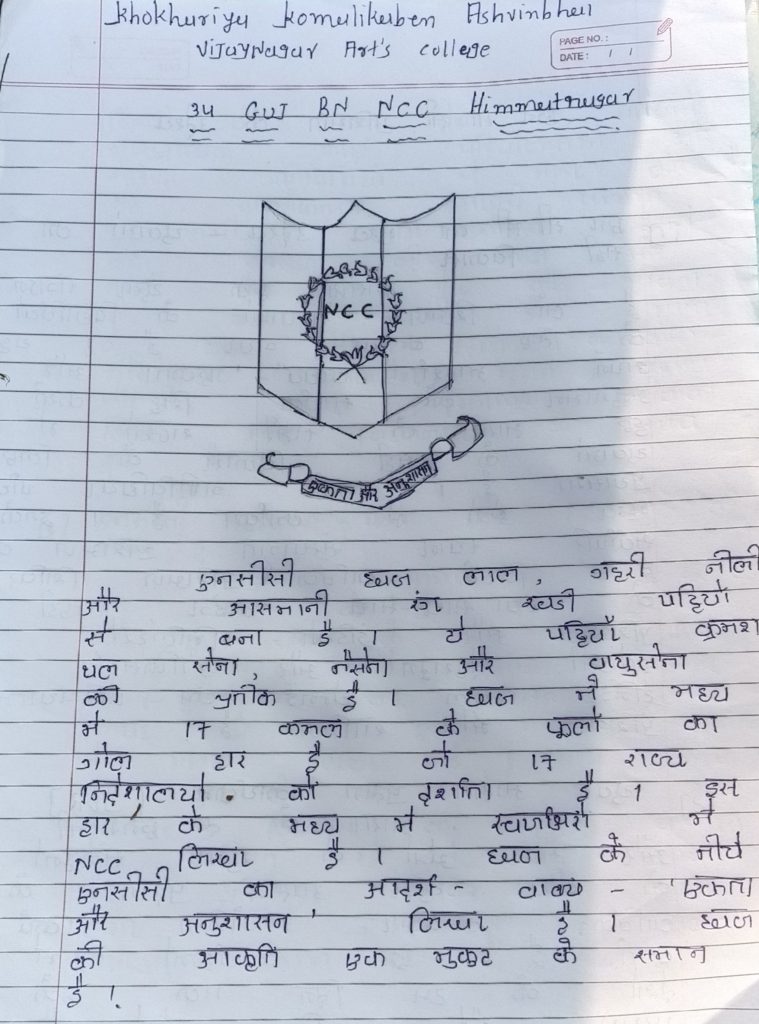 Khokhariya Komalikaben Ashvinbhai
Vijaynagar Art's college
PAGE NO.:
DATE: / /
34 GUJ BN NCC Himmatnagar
NCC
एकता और अनुशासन
एनसीसी ध्वज लाल, गहरी नीली
और आसमानी रंग खडी पट्टियों
से बना है। ये पट्टियाँ क्रमश
थल सेना, नैसेना और वायुसेना
की प्रतीक है। ध्वज में मध्य
में 17 कमल के फूलों का
गोल हार है जो 17 राज्य
निदेशालयो को दर्शाता है। इस
हार के मध्य में स्वर्णाक्षरों में
NCC लिखा है। ध्वज के नीचे
एनसीसी का आदर्श - वाक्य - 'एकता
और अनुशासन' लिखा है। ध्वज
की आकृति एक मुकुट के समान
है।